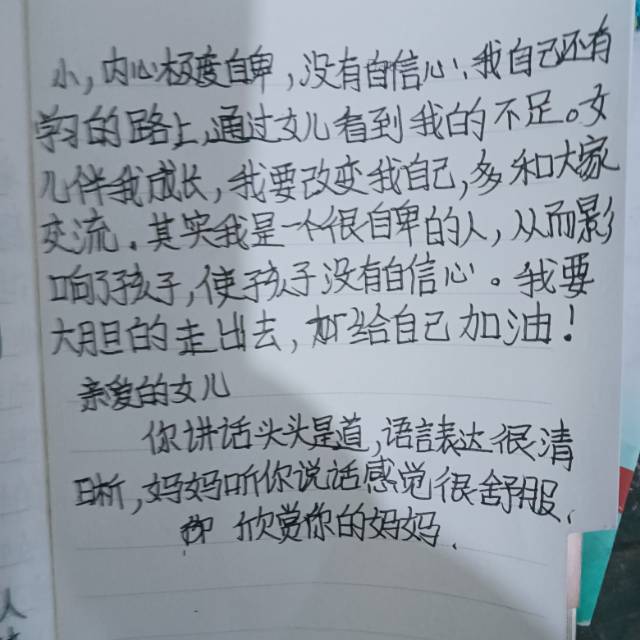 小，内心极度自卑，没有自信心：我自己还有
学习的路上，通过女儿看到我的不足。女
儿伴我成长，我要改变我自己，多和大家
交流。其实我是一个很自卑的人，从而影
响了孩子，使孩子没有自信心。我要
大胆的走出去，给自己加油！
亲爱的女儿
你讲话头头是道，语言表达很清
晰，妈妈听你说话感觉很舒服、
欣赏你的妈妈.